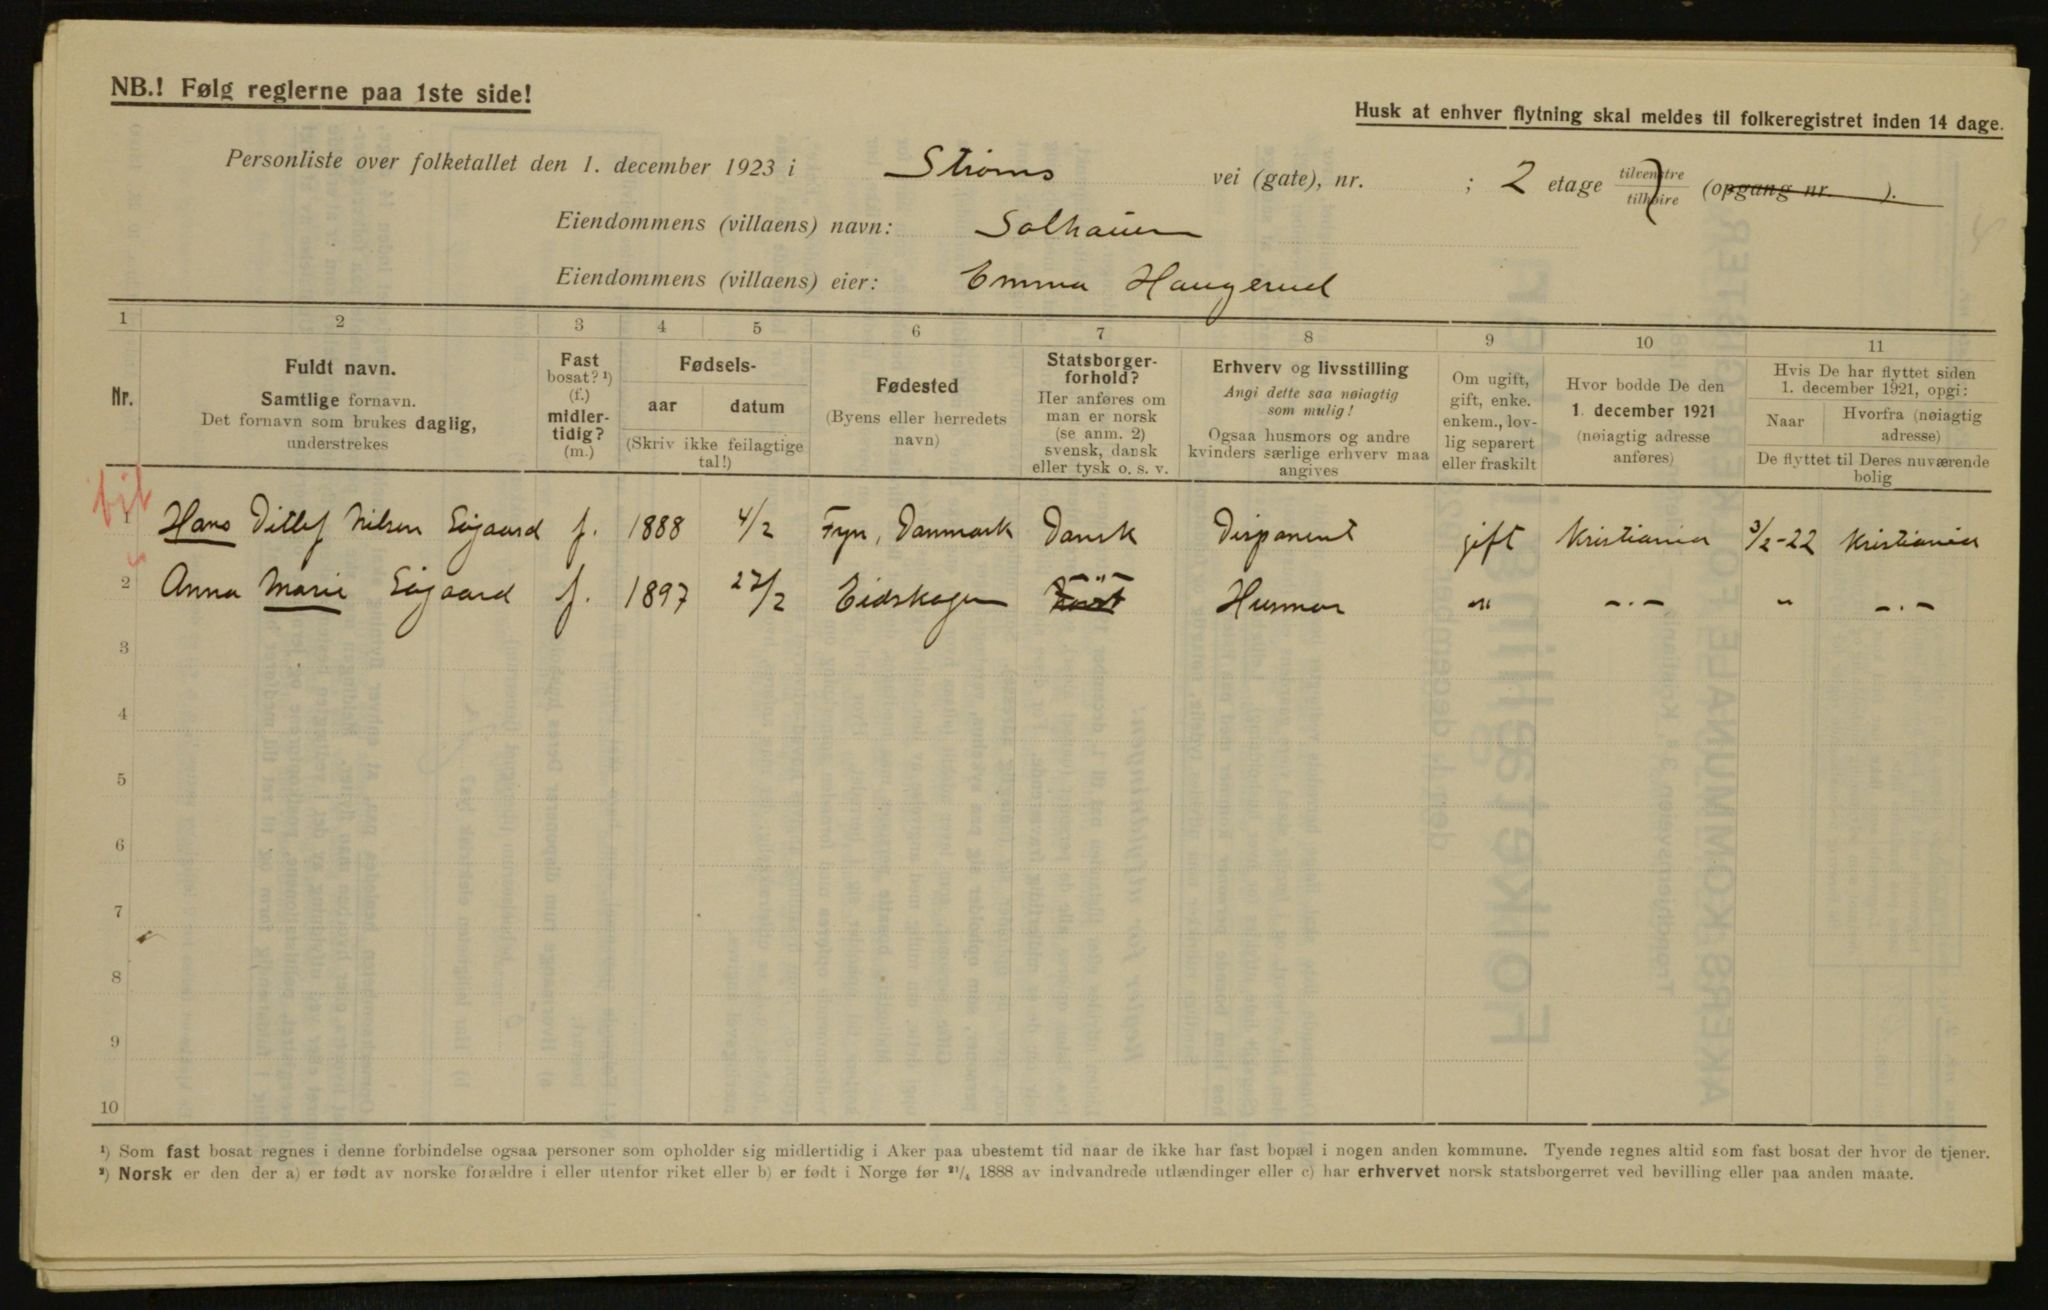 NB.! Følg reglerne paa 1ste side!
Husk at enhver flytning skal meldes til folkeregistret inden 14 dage.
Personliste over folketallet den 1. december 1923 i Strøms vei (gate), nr. ; 2 etage tilvenstre tilhøire (opgang nr. ).
Eiendommens (villaens) navn: Solhaug
Eiendommens (villaens) eier: Emma Haugerud
1 2 3 4 5 6 7 8 9 10 11
Nr.
Fuldt navn.
Samtlige fornavn.
Det fornavn som brukes daglig,
understrekes
Fast
bosat? ¹)
(f.)
midler-
tidig?
(m.)
Fødsels-
aar datum
(Skriv ikke feilagtige
tal!)
Fødested
(Byens eller herredets
navn)
Statsborger-
forhold?
Her anføres om
man er norsk
(se anm. 2)
svensk, dansk
eller tysk o. s. v.
Erhverv og livsstilling
Angi dette saa nøiagtig
som mulig!
Ogsaa husmors og andre
kvinders særlige erhverv maa
angives
Om ugift,
gift, enke.
enkem., lov-
lig separert
eller fraskilt
Hvor bodde De den
1. december 1921
(nøiagtig adresse
anføres)
Hvis De har flyttet siden
1. december 1921, opgi:
Naar
Hvorfra (nøiagtig
adresse)
De flyttet til Deres nuværende
bolig
1 Hans Ditlef Nilsen Eigaard f. 1888 4/2 Fyn, Danmark Dansk Disponent gift Kristiania 3/2-22 Kristiania
2 Anna Marie Eigaard f. 1897 27/2 Eidskogen -"- Husmor " -.- " -.-
3
4
5
6
7
8
9
10
¹) Som fast bosat regnes i denne forbindelse ogsaa personer som opholder sig midlertidig i Aker paa ubestemt tid naar de ikke har fast bopæl i nogen anden kommune. Tyende regnes altid som fast bosat der hvor de tjener.
²) Norsk er den der a) er født av norske forældre i eller utenfor riket eller b) er født i Norge før ²¹/₄ 1888 av indvandrede utlændinger eller c) har erhvervet norsk statsborgerret ved bevilling eller paa anden maate.